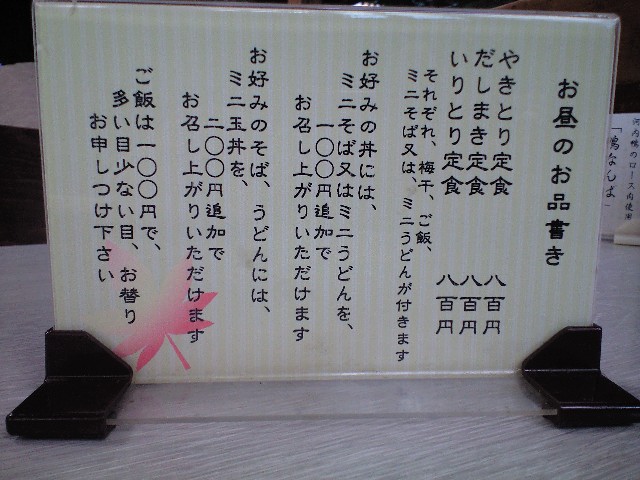 お昼のお品書き
やきとり定食 八百円
だしまき定食 八百円
いりとり定食 八百円
それぞれ、梅干、ご飯、
ミニそば又は、ミニうどんが付きます
お好みの丼には、
ミニそば又はミニうどんを、
一〇〇円追加で
お召し上がりいただけます
お好みのそば、うどんには、
ミニ玉丼を、
二〇〇円追加で
お召し上がりいただけます
ご飯は一〇〇円で、
多い目少ない目、お替り
お申しつけ下さい
河内鴨のロース肉使用
「鴨なんば」